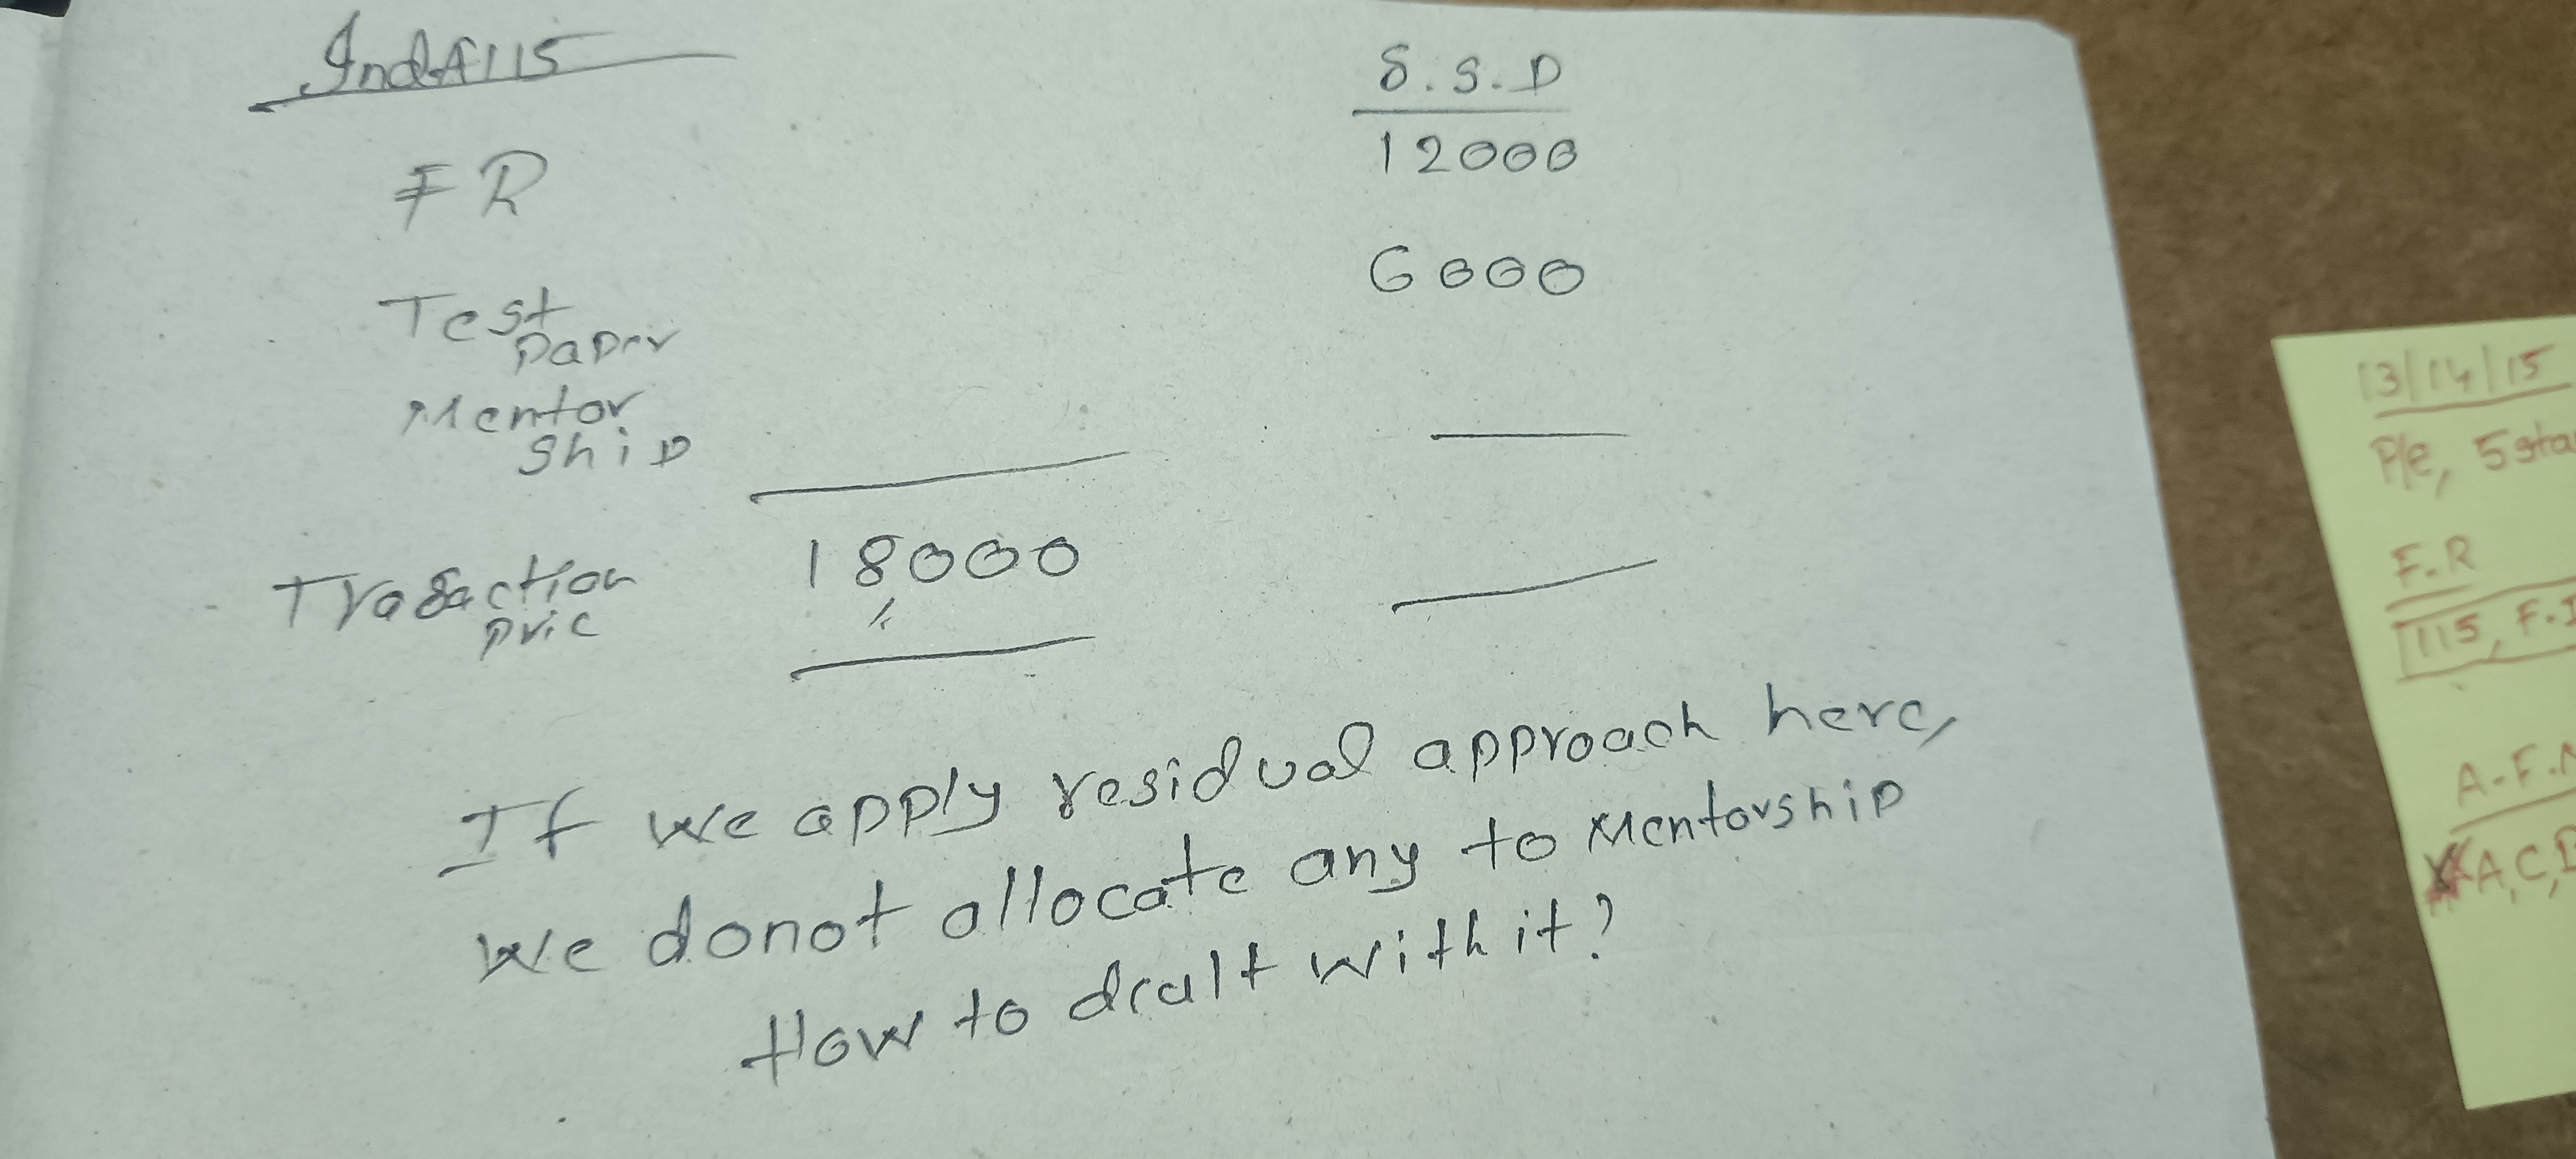 IndA115
S.S.D
FR 12000
Test 6000
Paper
Mentor —
Ship
Trasaction 18000
pric
If we apply residual approach here,
we donot allocate any to Mentorship
How to dealt with it?
13/14/15
P/e, 5 sta
F.R
115, F.I
A-F.N
A, C, D